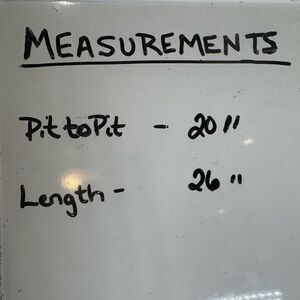 MEASUREMENTS
Pit to Pit - 20"
Length - 26"